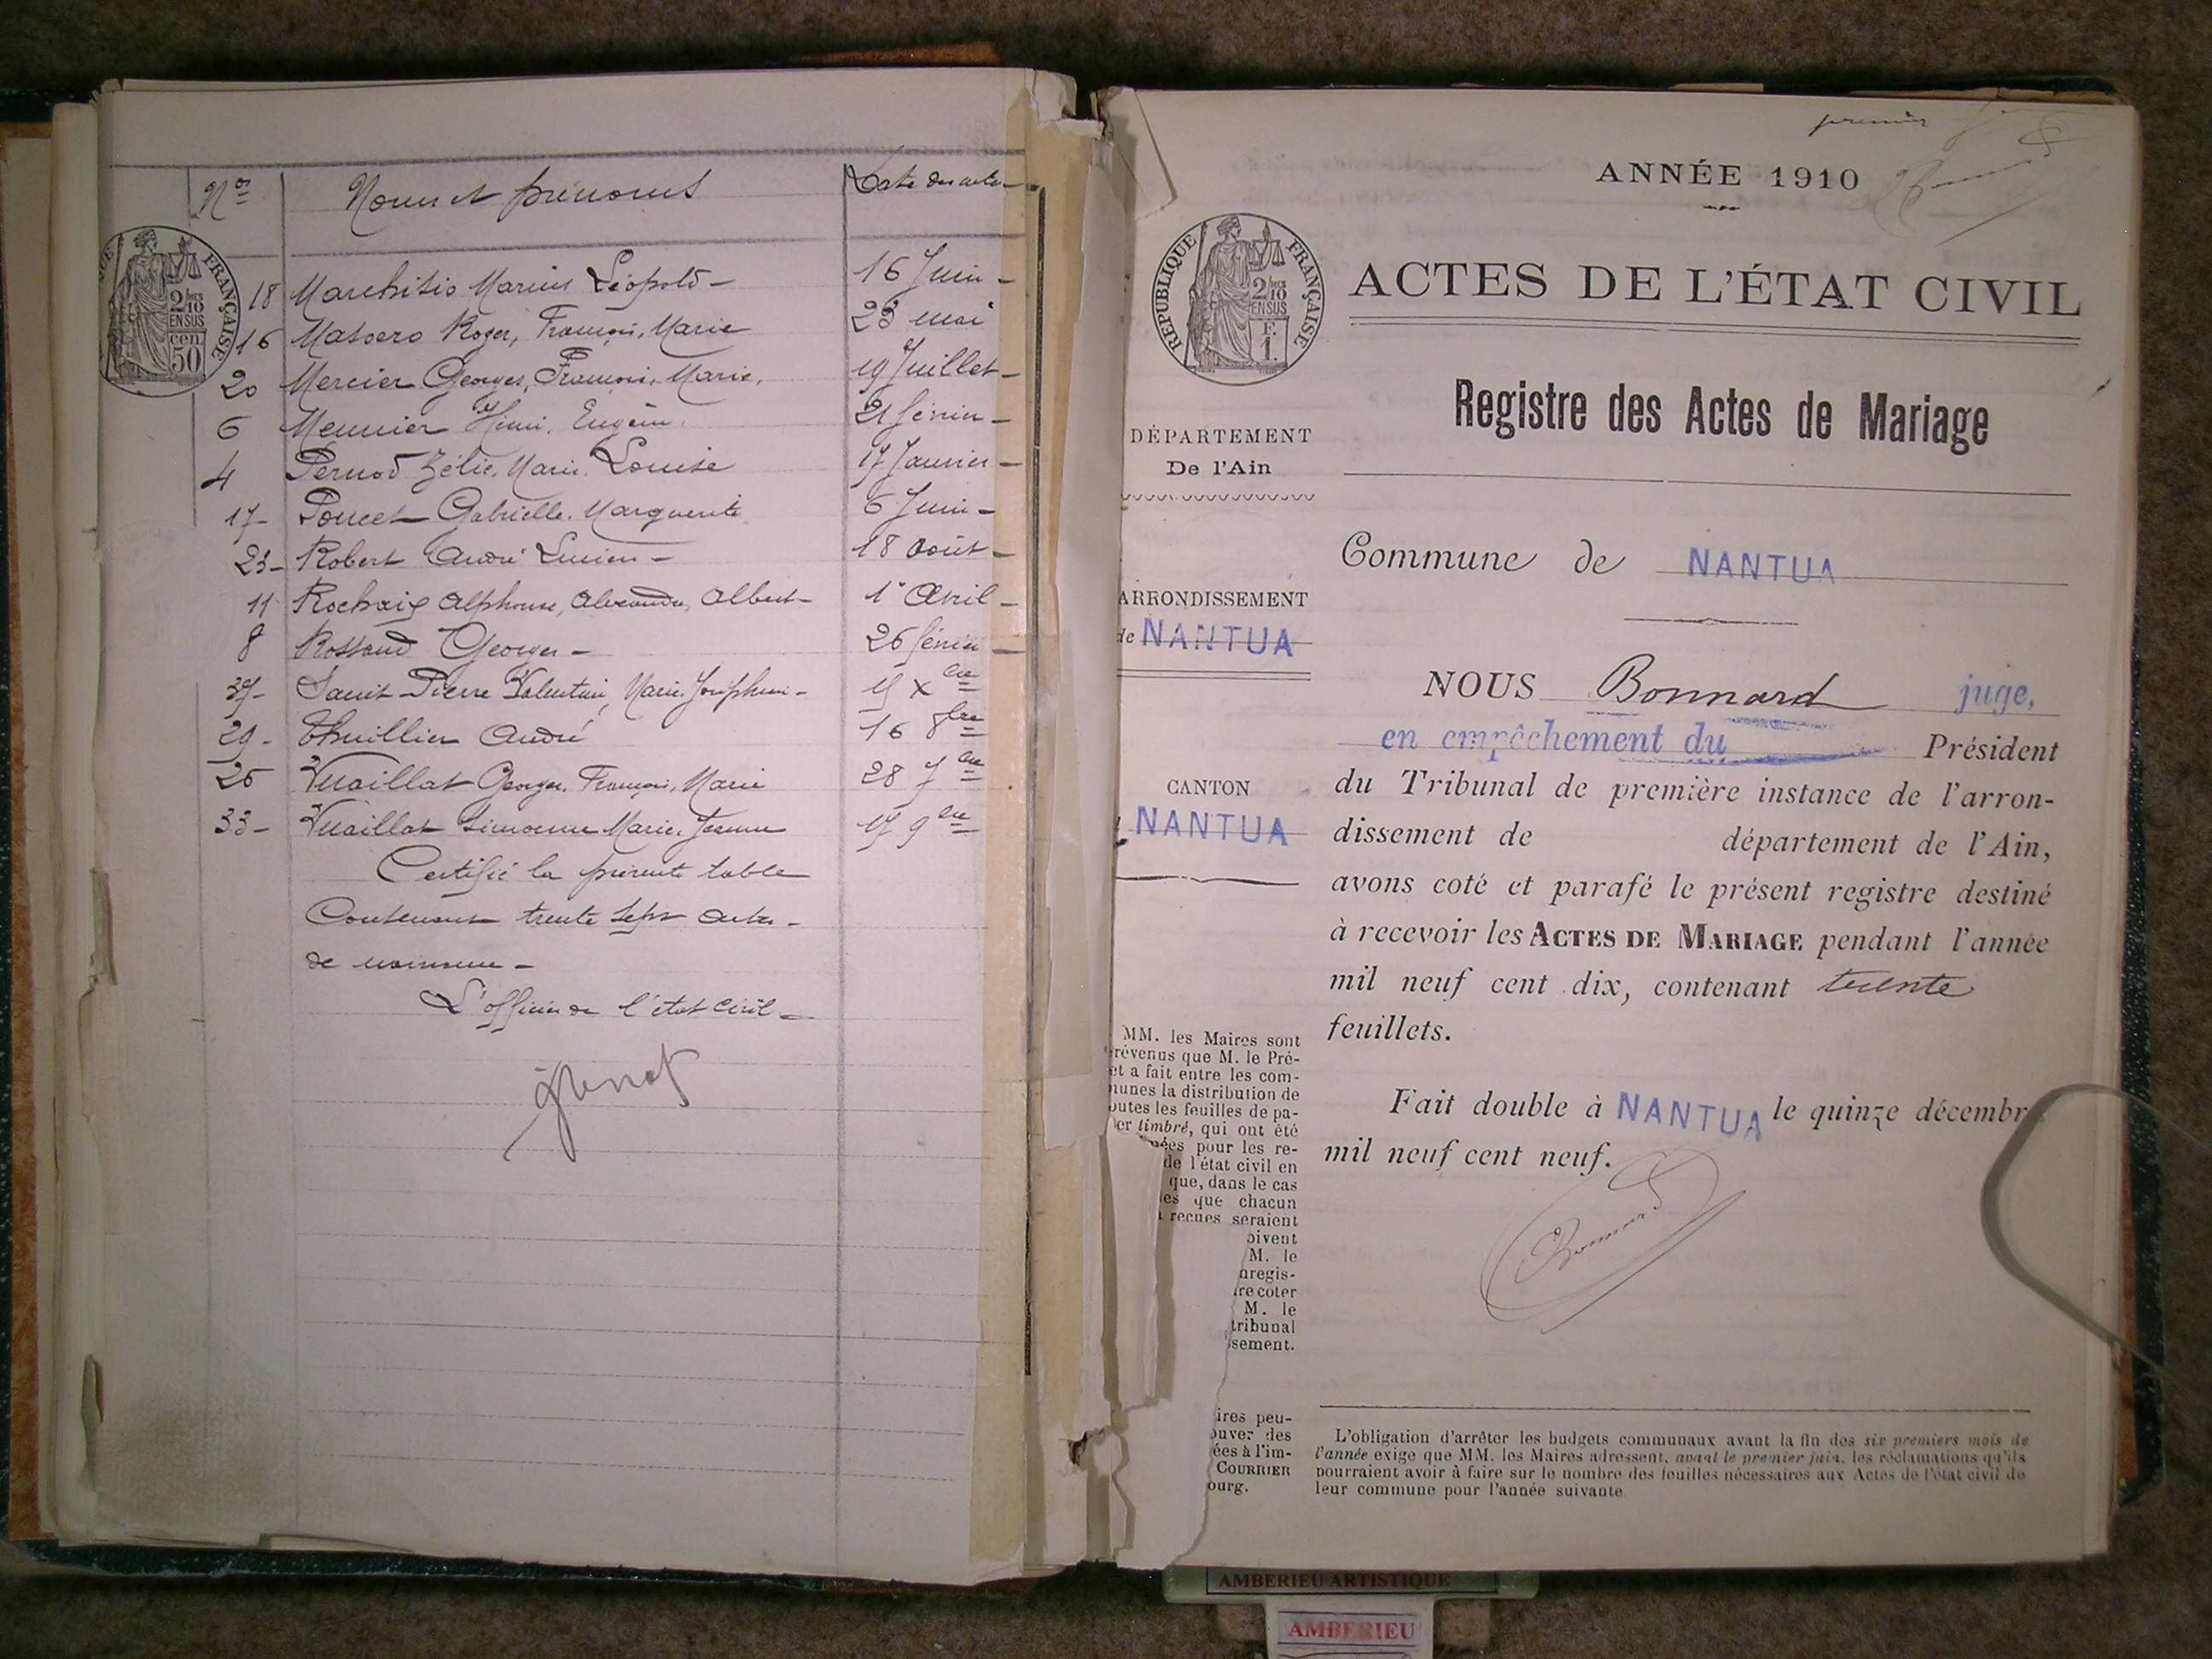 Nos Noms et prénoms Date des actes
18 Marchisio Marius Léopold 16 Juin
16 Masoero Roger, François, Marie 23 mai
20 Mercier Georges, François, Marie, 19 Juillet
6 Meunier Henri, Eugène, 21 février
4 Pernod Zélie, Marie, Louise 17 Janvier
17 Poncet Gabrielle, Marguerite 6 Juin
23 Robert André Lucien 18 août
11 Rochaix Alphonse, Alexandre, Albert 1er Avril
8 Rossand Georges 26 février
37 Saint-Pierre Valentin, Marie, Joséphin 15 Xbre
29 Thuillier André 16 8bre
25 Vuaillat Georges, François, Marie 28 7bre
33 Vuaillat Simonne Marie, Jeanne 17 9bre
Certifié la présente table
Contenant trente sept actes
de naissance
L'officier de l'état civil
FRANÇAISE
2/10
EN SUS
cen
50
premier
ANNÉE 1910
RÉPUBLIQUE FRANÇAISE
2/10
EN SUS
F.
1.
ACTES DE L'ÉTAT CIVIL
Registre des Actes de Mariage
DÉPARTEMENT
De l'Ain
ARRONDISSEMENT
de NANTUA
CANTON
NANTUA
Commune de NANTUA
NOUS Bonnard juge,
en empêchement du Président
du Tribunal de première instance de l'arron-
dissement de département de l'Ain,
avons coté et parafé le présent registre destiné
à recevoir les ACTES DE MARIAGE pendant l'année
mil neuf cent dix, contenant trente
feuillets.
Fait double à NANTUA le quinze décembr
mil neuf cent neuf.
Bonnard
MM. les Maires sont
révenus que M. le Pré-
et a fait entre les com-
munes la distribution de
outes les feuilles de pa-
er timbré, qui ont été
nées pour les re-
de l'état civil en
que, dans le cas
es que chacun
recues seraient
oivent
M. le
nregis-
ire coter
M. le
tribunal
sement.
ires peu-
ouver des
ées à l'im-
COURRIER
ourg.
L'obligation d'arrêter les budgets communaux avant la fin des six premiers mois de
l'année exige que MM. les Maires adressent, avant le premier juin, les réclamations qu'ils
pourraient avoir à faire sur le nombre des feuilles nécessaires aux Actes de l'état civil de
leur commune pour l'année suivante
AMBERIEU ARTISTIQUE
AMBERIEU